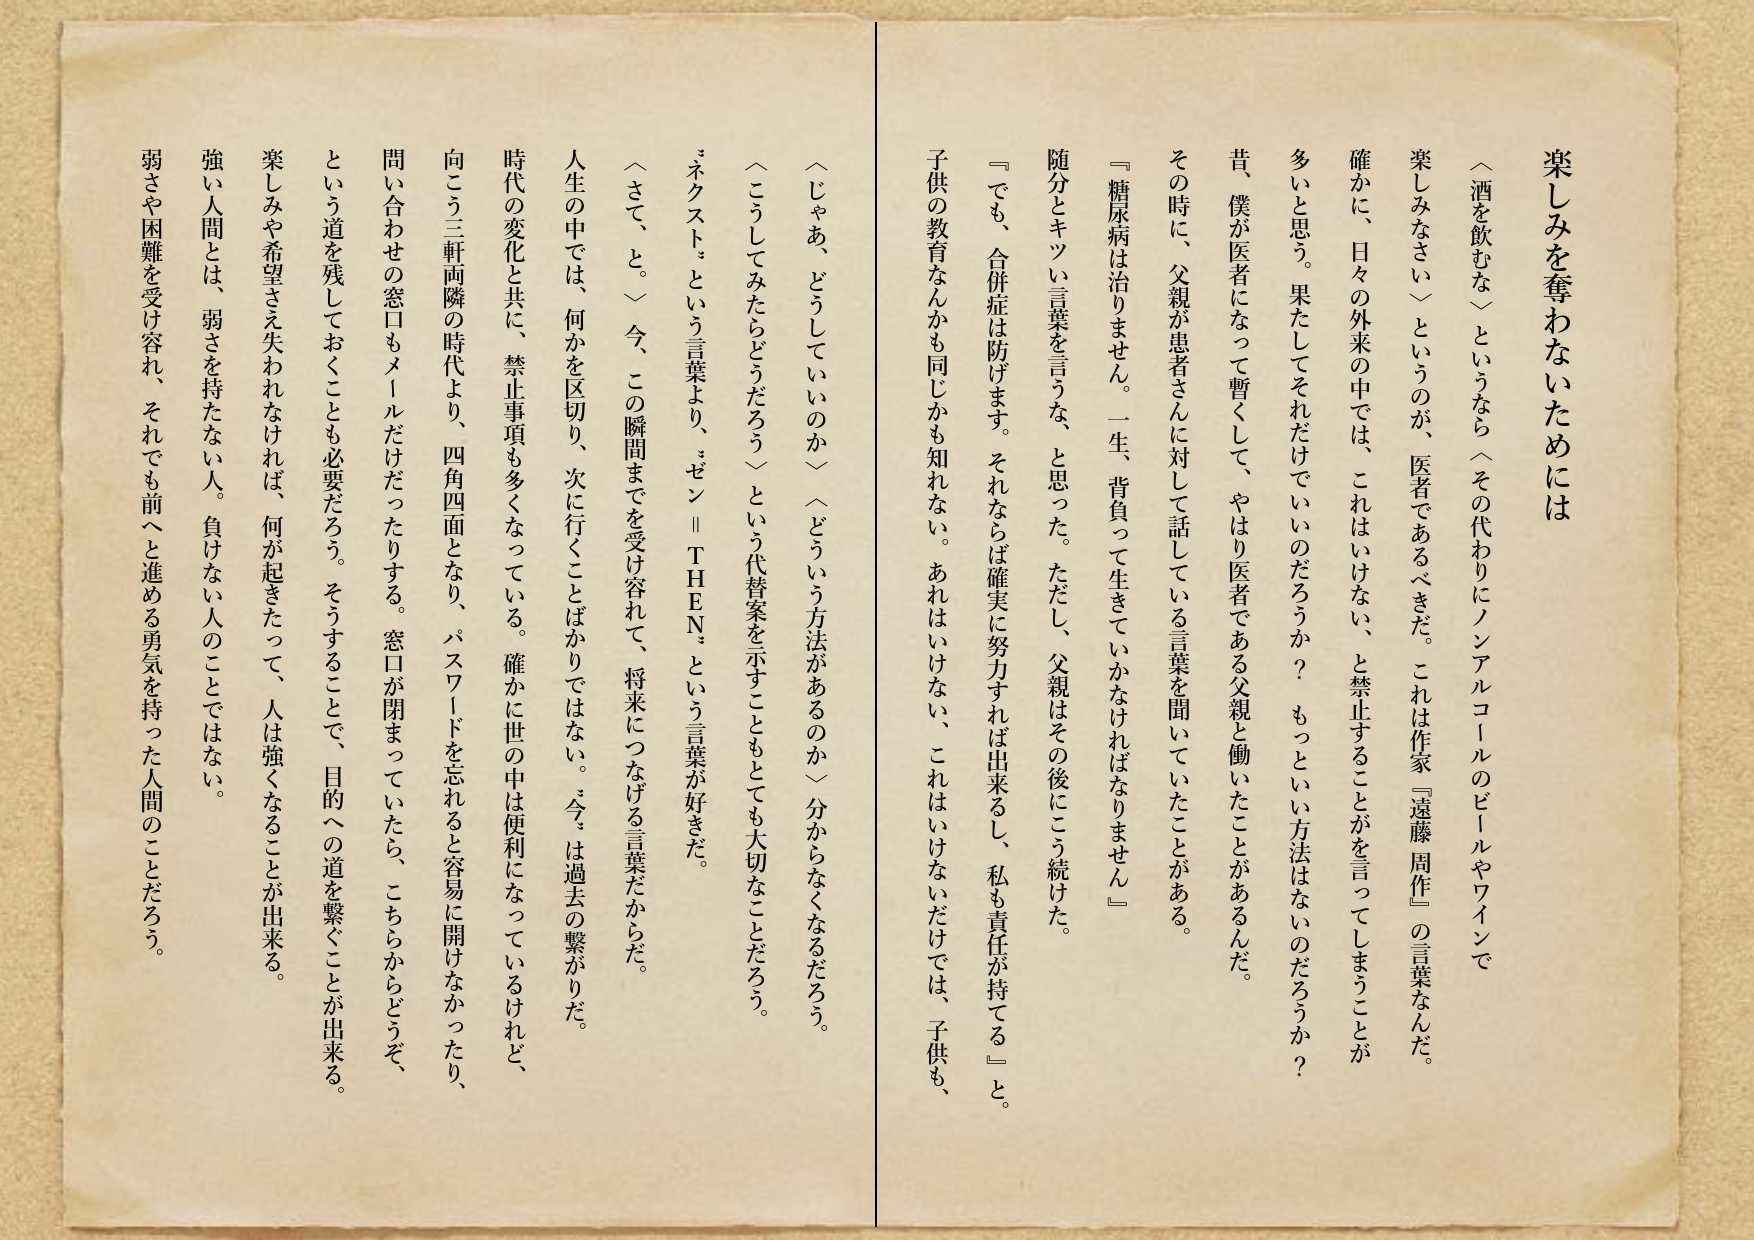 楽しみを奪わないためには
〈酒を飲むな〉というなら〈その代わりにノンアルコールのビールやワインで
楽しみなさい〉というのが、医者であるべきだ。これは作家『遠藤 周作』の言葉なんだ。
確かに、日々の外来の中では、これはいけない、と禁止することがを言ってしまうことが
多いと思う。果たしてそれだけでいいのだろうか？　もっといい方法はないのだろうか？
昔、僕が医者になって暫くして、やはり医者である父親と働いたことがあるんだ。
その時に、父親が患者さんに対して話している言葉を聞いていたことがある。
『糖尿病は治りません。一生、背負って生きていかなければなりません』
随分とキツい言葉を言うな、と思った。ただし、父親はその後にこう続けた。
『でも、合併症は防げます。それならば確実に努力すれば出来るし、私も責任が持てる』と。
子供の教育なんかも同じかも知れない。あれはいけない、これはいけないだけでは、子供も、
〈じゃあ、どうしていいのか〉〈どういう方法があるのか〉分からなくなるだろう。
〈こうしてみたらどうだろう〉という代替案を示すこともとても大切なことだろう。
〝ネクスト〟という言葉より、〝ゼン＝ＴＨＥＮ〟という言葉が好きだ。
〈さて、と。〉今、この瞬間までを受け容れて、将来につなげる言葉だからだ。
人生の中では、何かを区切り、次に行くことばかりではない。〝今〟は過去の繋がりだ。
時代の変化と共に、禁止事項も多くなっている。確かに世の中は便利になっているけれど、
向こう三軒両隣の時代より、四角四面となり、パスワードを忘れると容易に開けなかったり、
問い合わせの窓口もメールだけだったりする。窓口が閉まっていたら、こちらからどうぞ、
という道を残しておくことも必要だろう。そうすることで、目的への道を繋ぐことが出来る。
楽しみや希望さえ失われなければ、何が起きたって、人は強くなることが出来る。
強い人間とは、弱さを持たない人。負けない人のことではない。
弱さや困難を受け容れ、それでも前へと進める勇気を持った人間のことだろう。